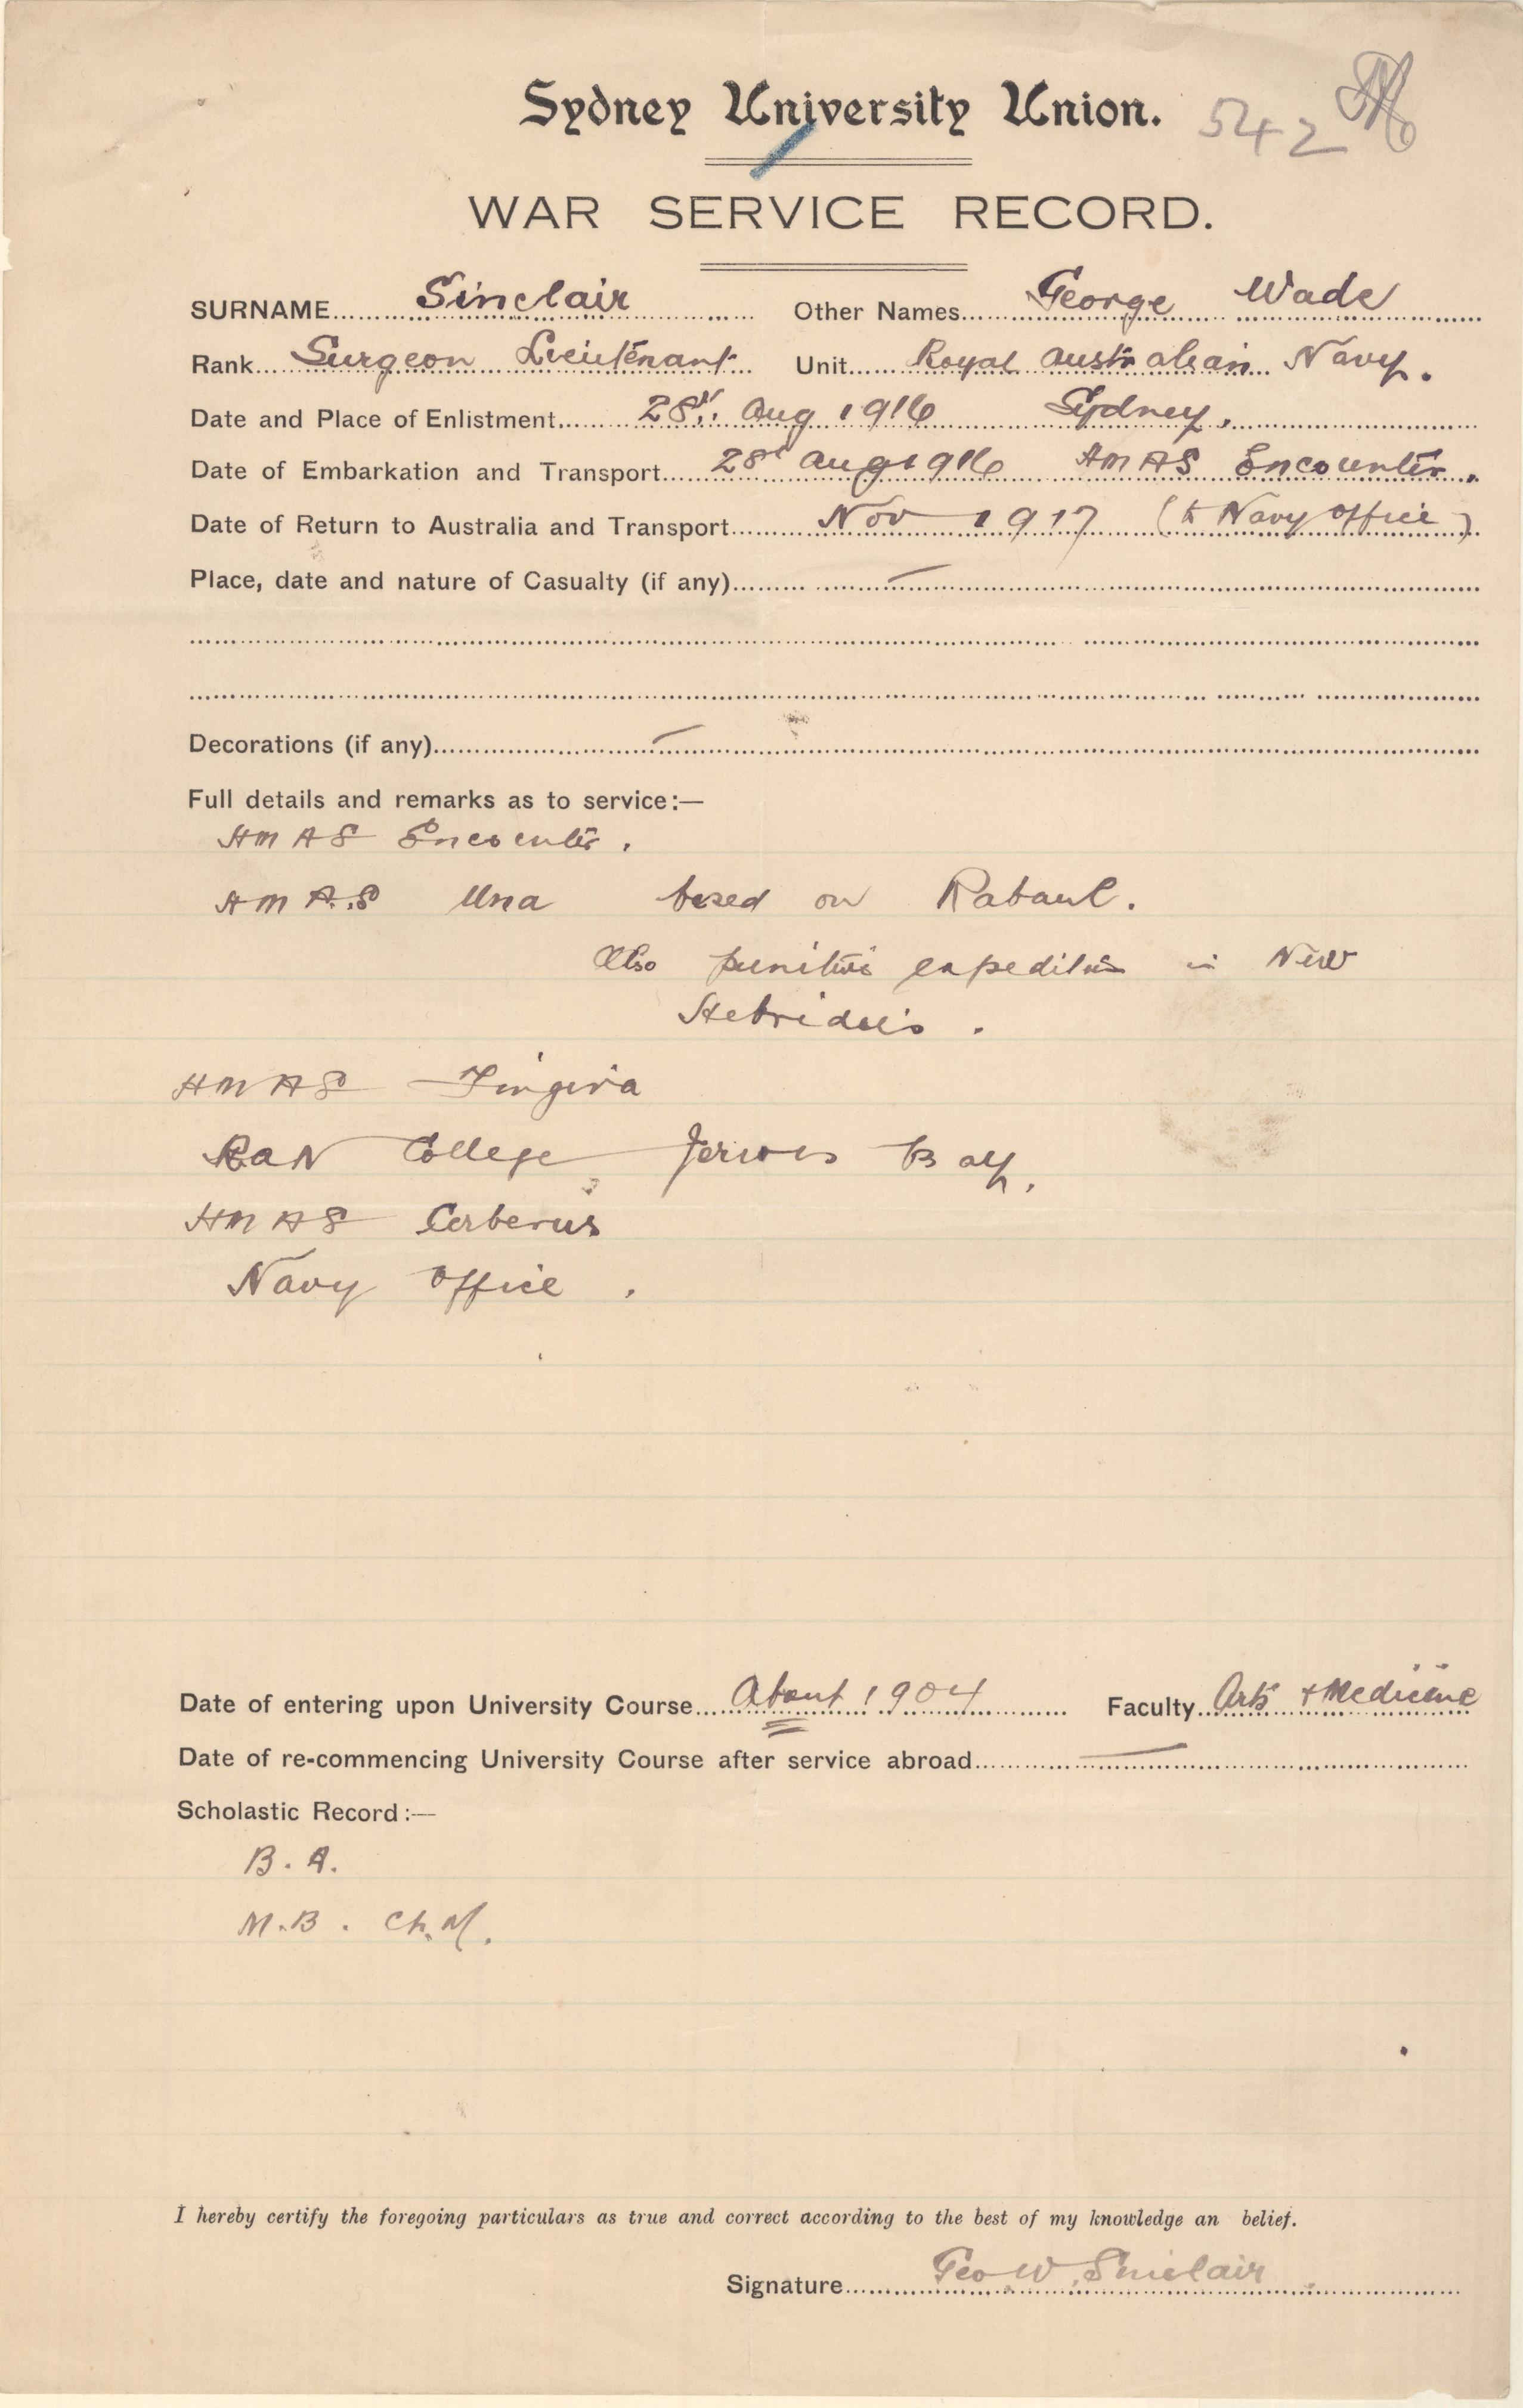 Sydney University Union. 542
WAR SERVICE RECORD.
SURNAME Sinclair Other Names George Wade
Rank Surgeon Lieutenant Unit Royal Australian Navy.
Date and Place of Enlistment 28th Aug 1916 Sydney.
Date of Embarkation and Transport 28th Aug 1916 HMAS Encounter.
Date of Return to Australia and Transport Nov 1917 (to Navy Office)
Place, date and nature of Casualty (if any) —
Decorations (if any) —
Full details and remarks as to service:—
HMAS Encounter.
HMAS Una based on Rabaul.
Also punitive expedition in New
Hebrides.
HMAS Tingira
RAN College Jervois Bay.
HMAS Cerberus
Navy Office.
Date of entering upon University Course About 1904 Faculty Arts + Medicine
Date of re-commencing University Course after service abroad —
Scholastic Record:—
B.A.
M.B. Ch.M.
I hereby certify the foregoing particulars as true and correct according to the best of my knowledge an belief.
Signature Geo W. Sinclair